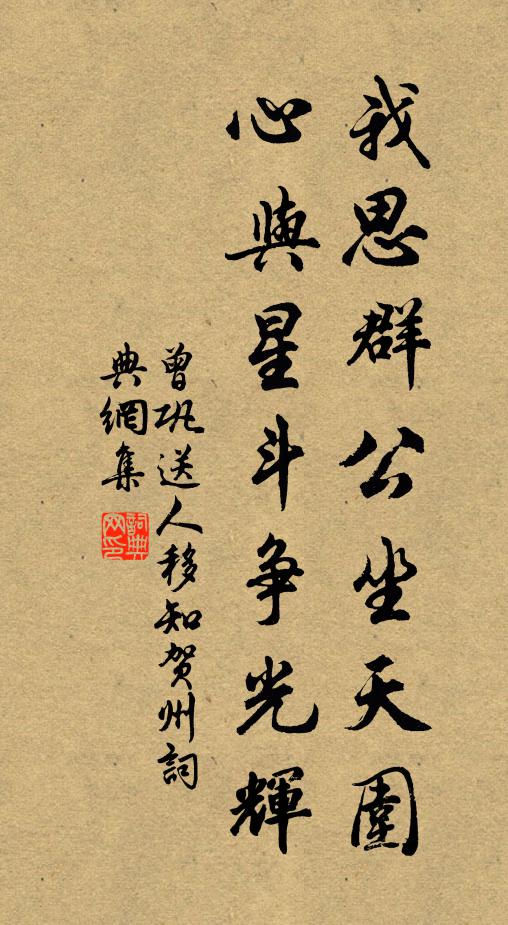 我思群公坐天圍
心與星斗争光輝
曾巩送人移知贺州詞
典網集
詞典
网印